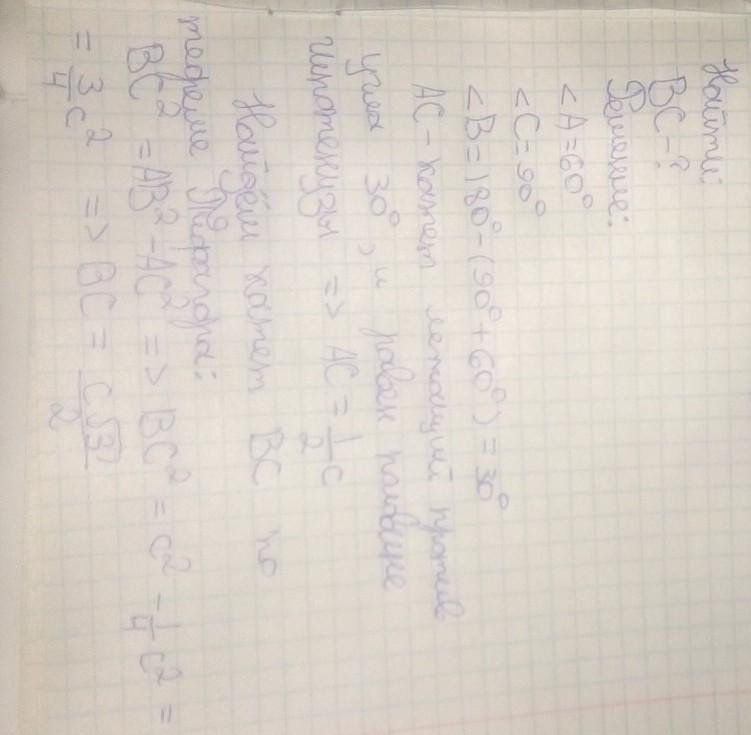 Найти:
BC-?
Решение:
<A=60°
<C=90°
<B=180°-(90°+60°)=30°
AC-катет лежащий против
угла 30°, и равен половине
гипотенузы => AC=1/2c
Найдём катет BC по
теореме Пифагора:
BC²=AB²-AC²=>BC²=c²-1/4c²=
=3/4c² => BC=c√3/2